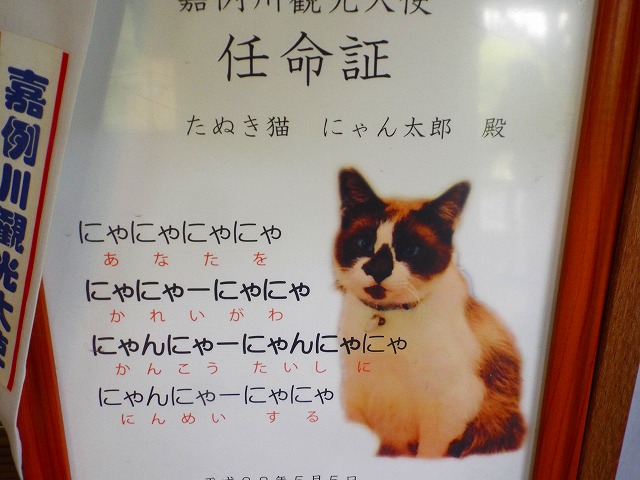 嘉例川観光大使
任命証
たぬき猫 にゃん太郎 殿
にゃにゃにゃにゃ
あなたを
にゃにゃーにゃにゃ
かれいがわ
にゃんにゃーにゃんにゃにゃ
かんこう たいしに
にゃんにゃーにゃにゃ
にんめい する
嘉例川観光大使